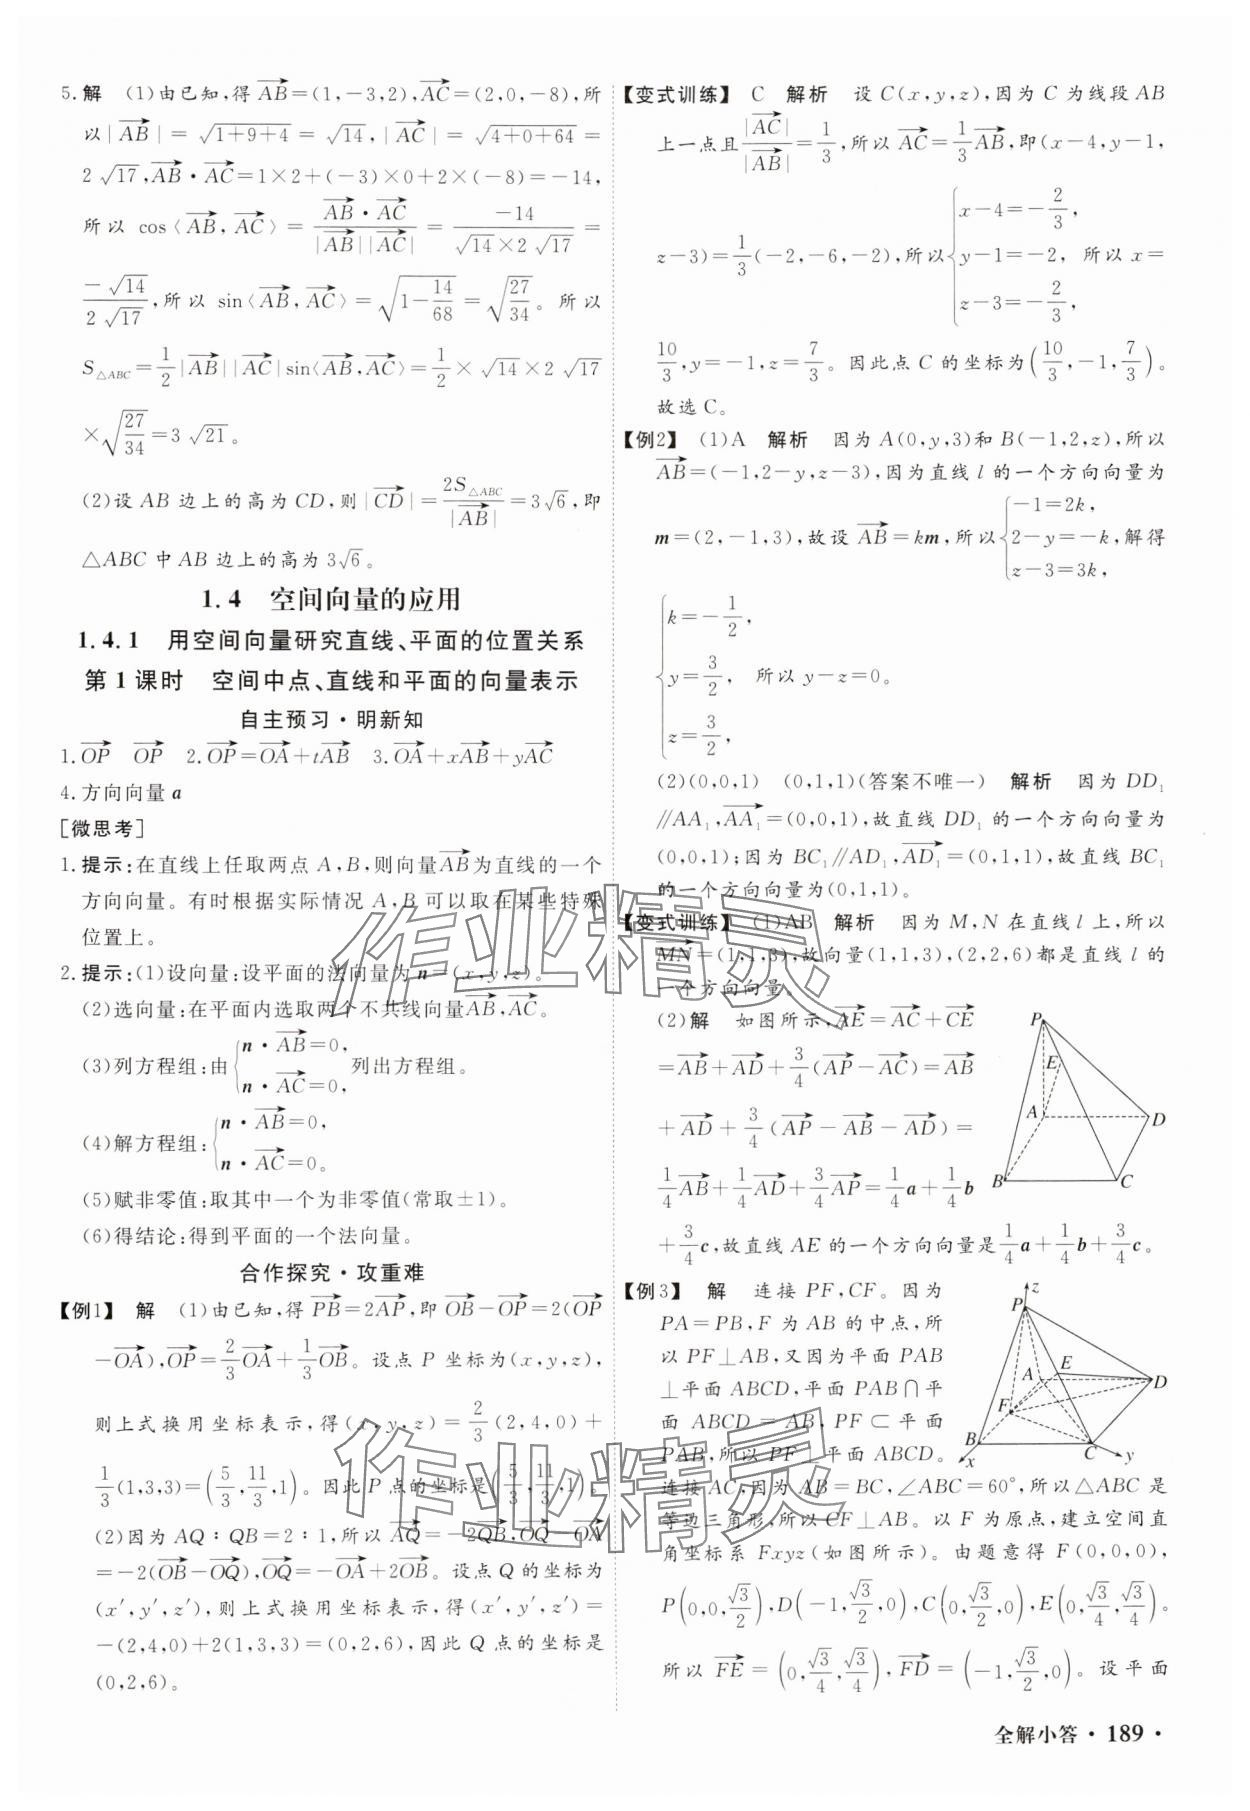 5. 解 (1)由已知,得 $\overrightarrow{AB}$=(1,-3,2),$\overrightarrow{AC}$=(2,0,-8),所
以|$\overrightarrow{AB}$|=$\sqrt{1+9+4}$=$\sqrt{14}$,|$\overrightarrow{AC}$|=$\sqrt{4+0+64}$=
2$\sqrt{17}$,$\overrightarrow{AB}$·$\overrightarrow{AC}$=1×2+(-3)×0+2×(-8)=-14,
所以 cos⟨$\overrightarrow{AB}$,$\overrightarrow{AC}$⟩=$\frac{\overrightarrow{AB}·\overrightarrow{AC}}{|\overrightarrow{AB}||\overrightarrow{AC}|}$=$\frac{-14}{\sqrt{14}×2\sqrt{17}}$=
$\frac{-\sqrt{14}}{2\sqrt{17}}$,所以 sin⟨$\overrightarrow{AB}$,$\overrightarrow{AC}$⟩=$\sqrt{1-\frac{14}{68}}$=$\sqrt{\frac{27}{34}}$。所以
$S_{△ABC}$=$\frac{1}{2}$|$\overrightarrow{AB}$||$\overrightarrow{AC}$|sin⟨$\overrightarrow{AB}$,$\overrightarrow{AC}$⟩=$\frac{1}{2}$×$\sqrt{14}$×2$\sqrt{17}$
×$\sqrt{\frac{27}{34}}$=3$\sqrt{21}$。
(2)设 AB 边上的高为 CD,则|$\overrightarrow{CD}$|=$\frac{2S_{△ABC}}{|\overrightarrow{AB}|}$=3$\sqrt{6}$,即
△ABC 中 AB 边上的高为 3$\sqrt{6}$。
1.4 空间向量的应用
1.4.1 用空间向量研究直线、平面的位置关系
第1课时 空间中点、直线和平面的向量表示
自主预习·明新知
1.$\overrightarrow{OP}$ $\overrightarrow{OP}$ 2.$\overrightarrow{OP}$=$\overrightarrow{OA}$+t$\overrightarrow{AB}$ 3.$\overrightarrow{OA}$+x$\overrightarrow{AB}$+y$\overrightarrow{AC}$
4.方向向量 a
[微思考]
1.提示:在直线上任取两点 A,B,则向量$\overrightarrow{AB}$为直线的一个
方向向量。有时根据实际情况 A,B 可以取在某些特殊
位置上。
2.提示:(1)设向量:设平面的法向量为 n=(x,y,z)。
(2)选向量:在平面内选取两个不共线向量$\overrightarrow{AB}$,$\overrightarrow{AC}$。
(3)列方程组:由$\begin{cases}n·\overrightarrow{AB}=0,\\n·\overrightarrow{AC}=0,\end{cases}$列出方程组。
(4)解方程组:$\begin{cases}n·\overrightarrow{AB}=0,\\n·\overrightarrow{AC}=0。\end{cases}$
(5)赋非零值:取其中一个为非零值(常取±1)。
(6)得结论:得到平面的一个法向量。
合作探究·攻重难
【例1】 解 (1)由已知,得 $\overrightarrow{PB}$=2$\overrightarrow{AP}$,即 $\overrightarrow{OB}$-$\overrightarrow{OP}$=2($\overrightarrow{OP}$
-$\overrightarrow{OA}$),$\overrightarrow{OP}$=$\frac{2}{3}\overrightarrow{OA}$+$\frac{1}{3}\overrightarrow{OB}$。设点 P 坐标为(x,y,z),
则上式换用坐标表示,得(x,y,z)=$\frac{2}{3}$(2,4,0)+
$\frac{1}{3}$(1,3,3)=$\left(\frac{5}{3},\frac{11}{3},1\right)$。因此 P 点的坐标是$\left(\frac{5}{3},\frac{11}{3},1\right)$。
(2)因为 AQ∶QB=2∶1,所以 $\overrightarrow{AQ}$=-2$\overrightarrow{QB}$,$\overrightarrow{OQ}$-$\overrightarrow{OA}$
=-2($\overrightarrow{OB}$-$\overrightarrow{OQ}$),$\overrightarrow{OQ}$=-$\overrightarrow{OA}$+2$\overrightarrow{OB}$。设点 Q 的坐标为
(x′,y′,z′),则上式换用坐标表示,得(x′,y′,z′)=
-(2,4,0)+2(1,3,3)=(0,2,6),因此 Q 点的坐标是
(0,2,6)。
【变式训练】 C 解析 设 C(x,y,z),因为 C 为线段 AB
上一点且$\frac{|\overrightarrow{AC}|}{|\overrightarrow{AB}|}$=$\frac{1}{3}$,所以 $\overrightarrow{AC}$=$\frac{1}{3}\overrightarrow{AB}$,即(x-4,y-1,
z-3)=$\frac{1}{3}$(-2,-6,-2),所以$\begin{cases}x-4=-\frac{2}{3},\\y-1=-2,\\z-3=-\frac{2}{3},\end{cases}$所以 x=
$\frac{10}{3}$,y=-1,z=$\frac{7}{3}$。因此点 C 的坐标为$\left(\frac{10}{3},-1,\frac{7}{3}\right)$。
故选C。
【例2】 (1)A 解析 因为 A(0,y,3)和 B(-1,2,z),所以
$\overrightarrow{AB}$=(-1,2-y,z-3),因为直线 l 的一个方向向量为
m=(2,-1,3),故设 $\overrightarrow{AB}$=km,所以$\begin{cases}-1=2k,\\2-y=-k,\\z-3=3k,\end{cases}$解得
$\begin{cases}k=-\frac{1}{2},\\y=\frac{3}{2},\\z=\frac{3}{2},\end{cases}$ 所以 y-z=0。
(2)(0,0,1) (0,1,1)(答案不唯一) 解析 因为 DD₁
∥AA₁,$\overrightarrow{AA_1}$=(0,0,1),故直线 DD₁ 的一个方向向量为
(0,0,1);因为 BC₁∥AD₁,$\overrightarrow{AD_1}$=(0,1,1),故直线 BC₁
的一个方向向量为(0,1,1)。
【变式训练】 (1)AB 解析 因为 M,N 在直线 l 上,所以
$\overrightarrow{MN}$=(1,1,3),故向量(1,1,3),(2,2,6)都是直线 l 的
一个方向向量。
(2)解 如图所示,$\overrightarrow{AE}$=$\overrightarrow{AC}$+$\overrightarrow{CE}$
=$\overrightarrow{AB}$+$\overrightarrow{AD}$+$\frac{3}{4}$($\overrightarrow{AP}$-$\overrightarrow{AC}$)=$\overrightarrow{AB}$
+$\overrightarrow{AD}$+$\frac{3}{4}$($\overrightarrow{AP}$-$\overrightarrow{AB}$-$\overrightarrow{AD}$)=
$\frac{1}{4}\overrightarrow{AB}$+$\frac{1}{4}\overrightarrow{AD}$+$\frac{3}{4}\overrightarrow{AP}$=$\frac{1}{4}$a+$\frac{1}{4}$b
+$\frac{3}{4}$c,故直线 AE 的一个方向向量是$\frac{1}{4}$a+$\frac{1}{4}$b+$\frac{3}{4}$c。
P
E
A
D
B
C
【例3】 解 连接 PF,CF。因为
PA=PB,F 为 AB 的中点,所
以 PF⊥AB,又因为平面 PAB
⊥平面 ABCD,平面 PAB∩平
面 ABCD=AB,PF⊂平面
PAB,所以 PF⊥平面 ABCD。
z
P
E
A
D
F
B
C
x
y
连接 AC,因为 AB=BC,∠ABC=60°,所以△ABC 是
等边三角形,所以CF⊥AB。以 F 为原点,建立空间直
角坐标系 Fxyz(如图所示)。由题意得 F(0,0,0),
P$\left(0,0,\frac{\sqrt{3}}{2}\right)$,D$\left(-1,\frac{\sqrt{3}}{2},0\right)$,C$\left(0,\frac{\sqrt{3}}{2},0\right)$,E$\left(0,\frac{\sqrt{3}}{4},\frac{\sqrt{3}}{4}\right)$。
所以 $\overrightarrow{FE}$=$\left(0,\frac{\sqrt{3}}{4},\frac{\sqrt{3}}{4}\right)$,$\overrightarrow{FD}$=$\left(-1,\frac{\sqrt{3}}{2},0\right)$。设平面
作业精灵
作业精灵
全解小答·189·